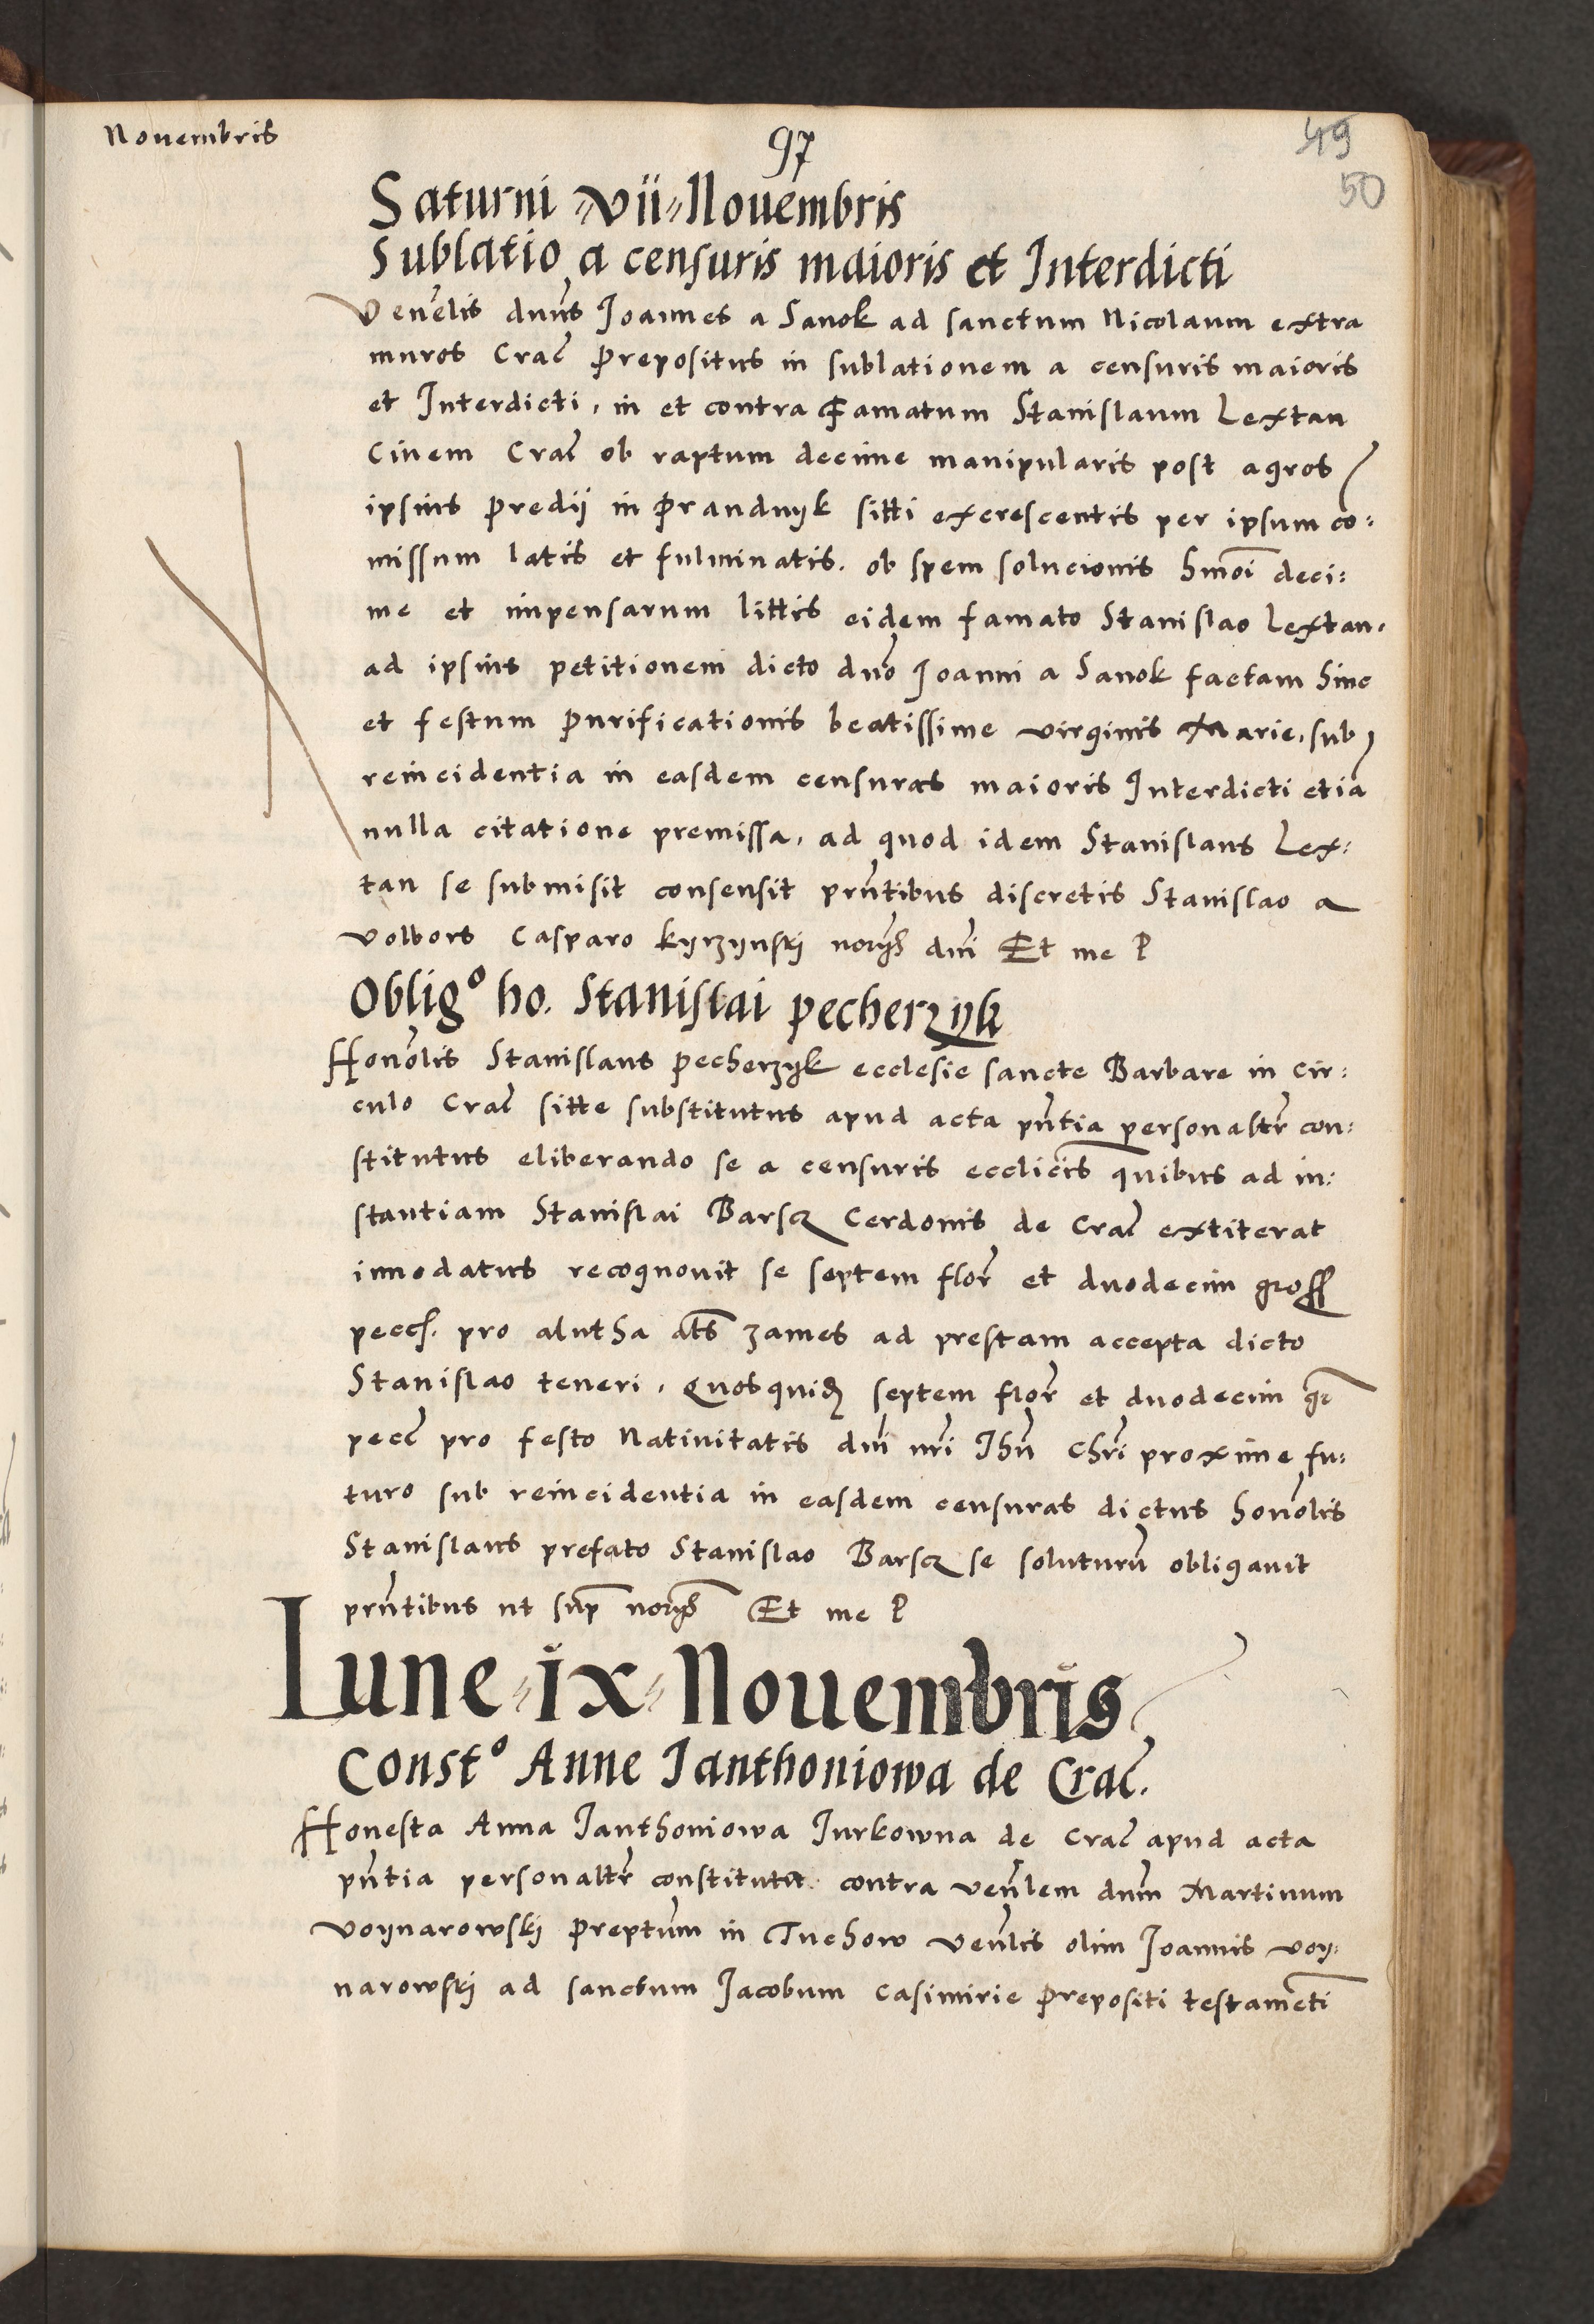 Nouembris
97
49
50
Saturni vii Nouembris
Sublatio a censuris maioris et Interdicti
Venẽlis dnũs Joannes a Sanok ad sanctum Nicolaum extra
muros Crac̃ Prepositus in sublationem a censuris maioris
et Interdicti, in et contra Famatum Stanislaum Lextan
Ciuem Crac̃ ob raptum decime manipularis post agros
ipsius Predij in Prandnyk sitti excrescentis per ipsum co:
missum latis et fulminatis. ob spem solucionis hmoĩ deci:
me et impensarum littis eidem famato Stanislao Lextan,
ad ipsius petitionem dicto dnõ Joanni a Sanok factam hinc
et festum Purificationis beatissime virginis Marie, sub
reincidentia in easdem censuras maioris Interdicti etiã
nulla citatione premissa, ad quod idem Stanislaus Lex:
tan se submisit consensit prñtibus discretis Stanislao a
Volbors Casparo Kyrzynski norijs dnĩ Et me P
Obligº ho. Stanislai Pecherzyk
Honõlis Stanislaus Pecherzyk ecclesie sancte Barbare in Cir:
culo Crac̃ sitte substitutus apud acta pñtia personaltr̃ con:
stitutus eliberando se a censuris eccliciis̃ quibus ad in:
stantiam Stanislai Barscz Cerdonis de Crac̃ extiterat
innodatus recognouit se septem flor̃ et duodecim gross
pecc. pro alutha als̃ zames ad prestam accepta dicto
Stanislao teneri, Quosquidẽ septem flor̃ et duodecim gr̃
pecc̃ pro festo Natiuitatis dnĩ nrĩ Jhũ Chrĩ proxime fu:
turo sub reincidentia in easdem censuras dictus honõlis
Stanislaus prefato Stanislao Barscz se soluturũ obligauit
prñtibus ut sup̃ norijs Et me P
Lune ix Nouembris
Constº Anne Janthoniowa de Crac̃.
Honesta Anna Janthoniowa Jurkowna de Crac̃ apud acta
pñtia personaltr̃ constituta contra venẽlem dnũm Martinum
Voynarowskj Preptũm in Tuchow venẽlis olim Joannis voy:
narowskj ad sanctum Jacobum Casimirie Prepositi testamẽti